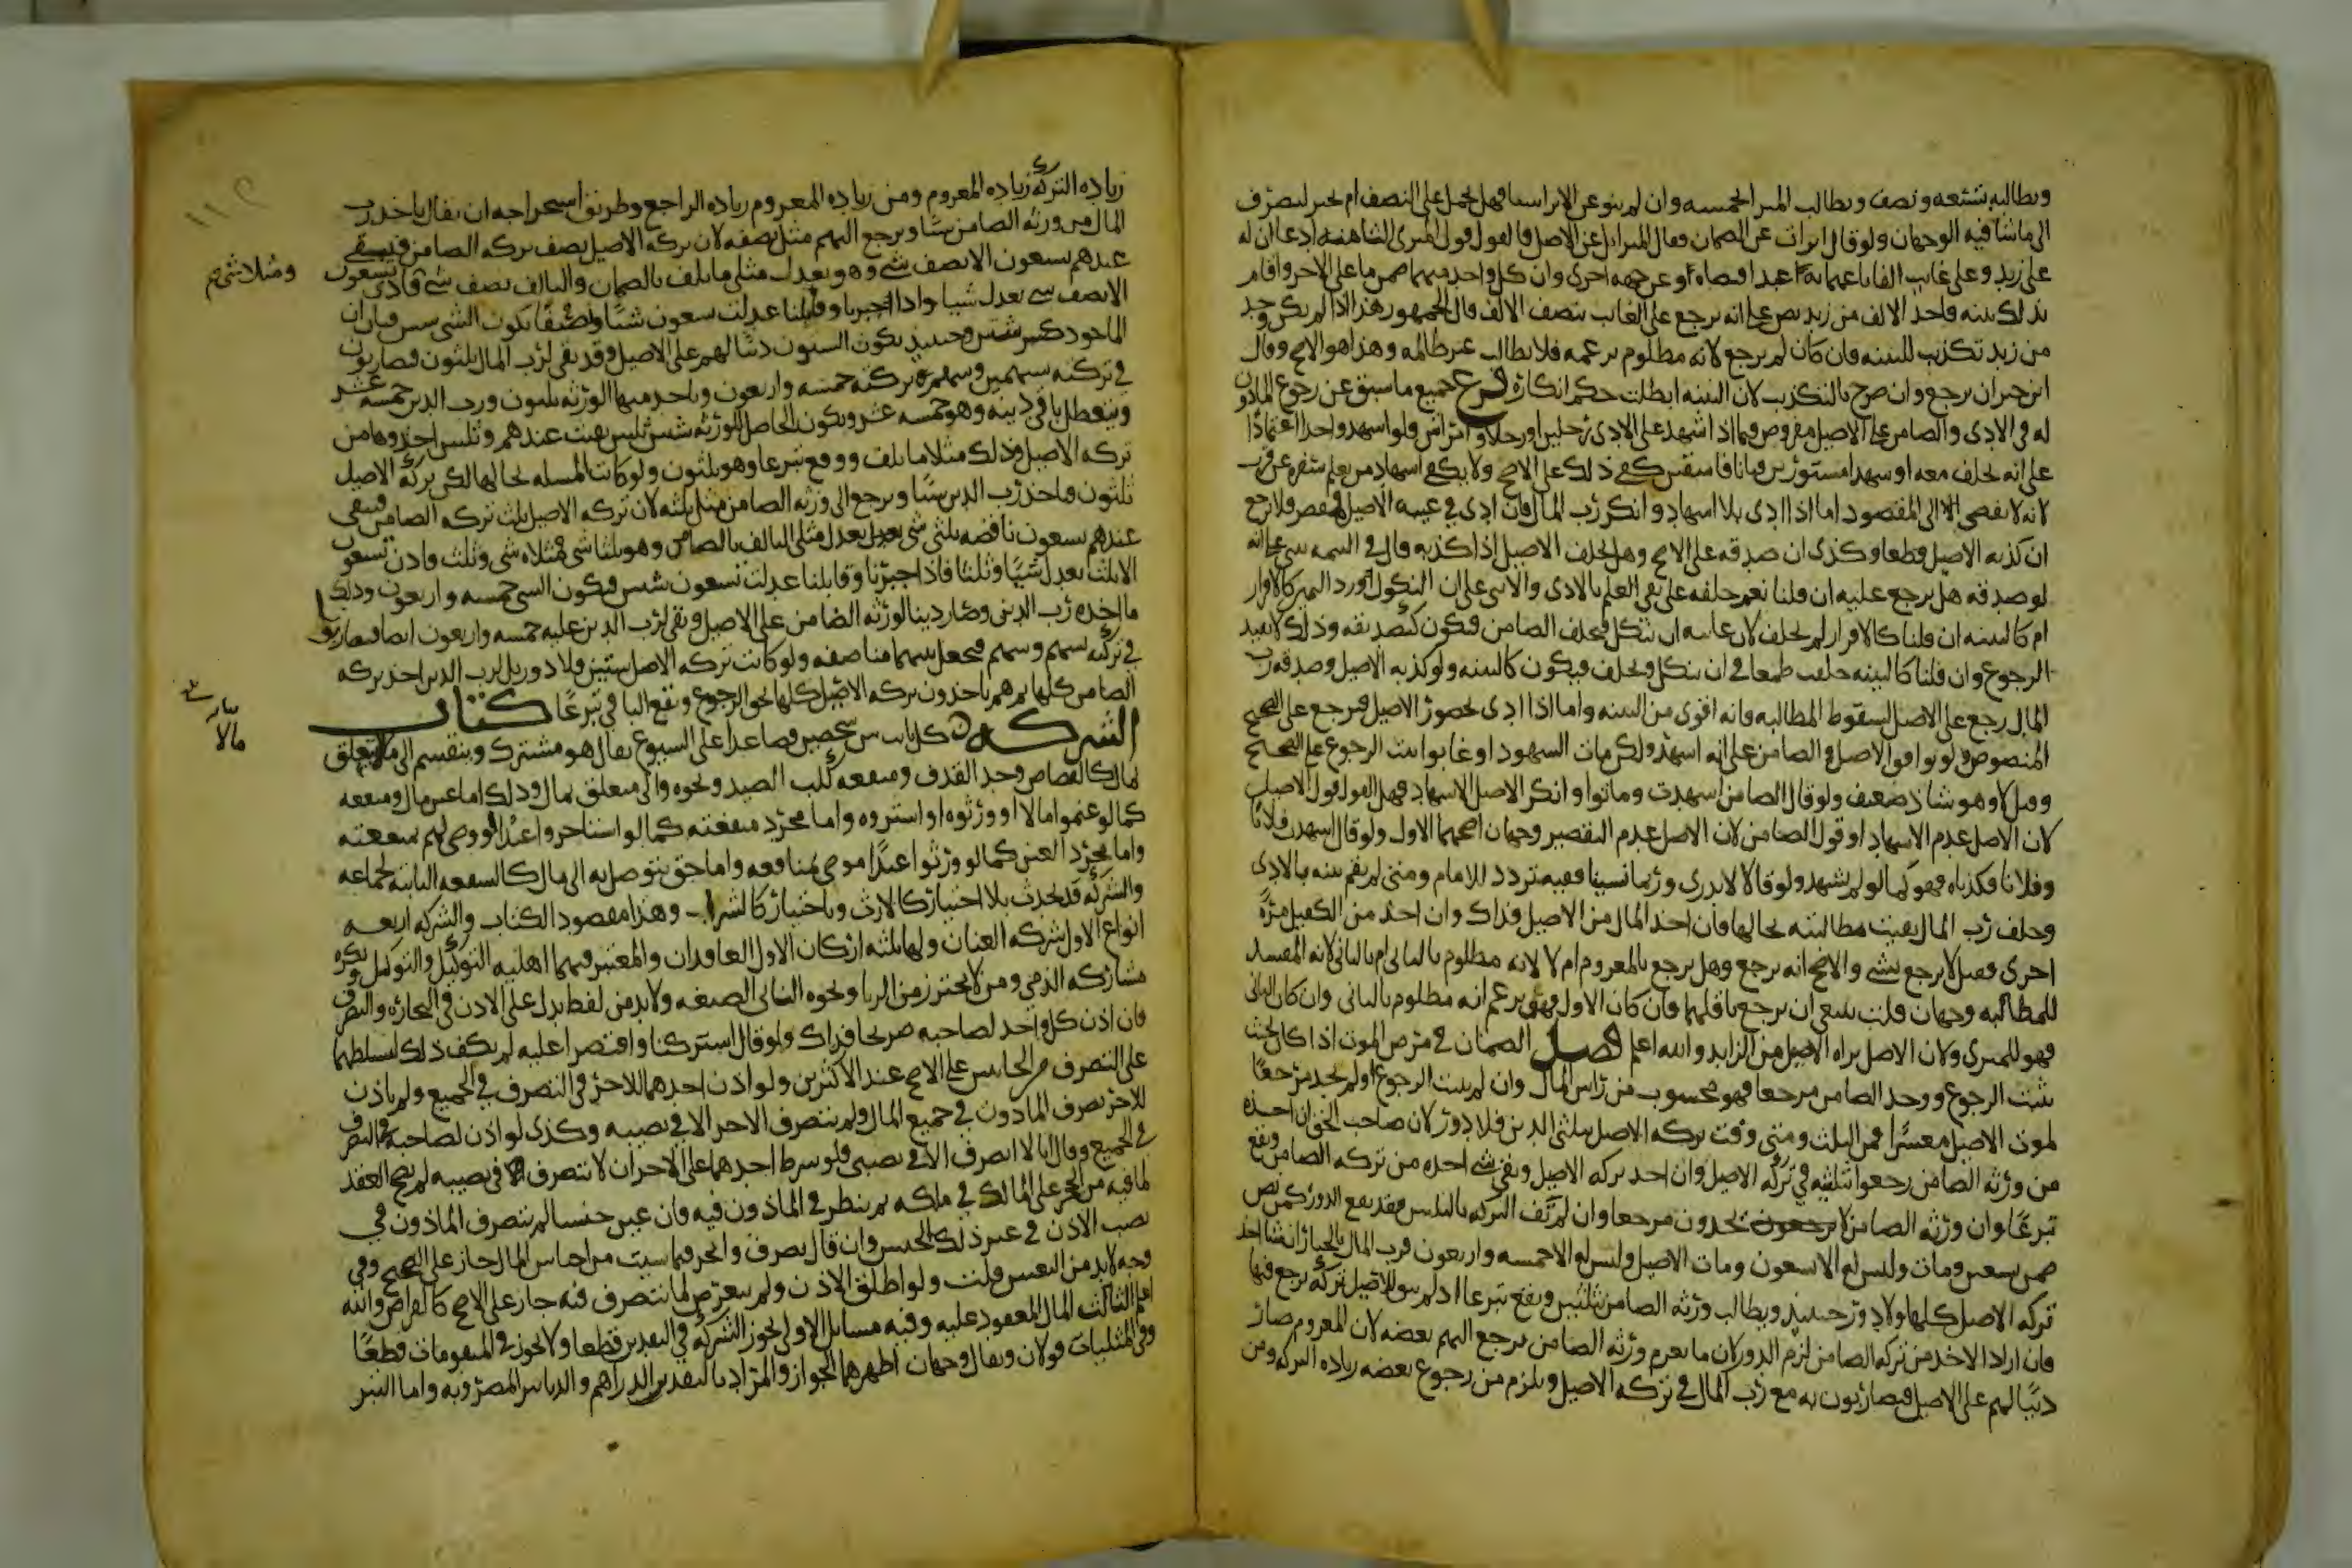 ويطالبه بتسعه ونصف ويطالب المبرا بخمسه وان لم ينو عن الابرا سيا فهل يحمل على النصف ام يخير ليصرف
الى ما شا فيه الوجهان ولو قال ابرات عن الضمان فقال المبرا بل عن الاصل فالقول قول المبرى الثامنه ادعا ان له
على زيد وعلى غايب الفا باعهما به عبدا قبضاه او عن جهه اخرى وان كل واحد منهما ضمن ما على الاخر واقام
بذلك بينه واخذ الالف من زيد نص على انه يرجع على الغايب بنصف الالف قال الجمهور هذا اذا لم يكن وجد
من زيد تكذيب للبينه فان كان لم يرجع لانه مظلوم بزعمه فلا يطالب غير ظالمه وهذا هو الاصح وقال
ابن خيران يرجع وان صرح بالتكذيب لان البينه ابطلت حكم انكاره فرع جميع ما سبق عن رجوع الماذون
له في الادى والضامن على الاصيل مفروض فيما اذا اشهد على الادى رجلين او رجلا وامراتين ولو اشهد واحدا اعتمادا
على انه يحلف معه او شهدا مستورين فبانا فاسقين كفى ذلك على الاصح ولا يكفي اشهاد من يعلم سفره عن قرب
لانه لا يفضي الى المقصود اما اذا ادى بلا اشهاد وانكر رب المال فان ادى في غيبه الاصيل فمقصر فلا يرجع
ان كذبه الاصيل قطعا وكذى ان صدقه على الاصح وهل يحلف الاصيل اذا كذبه قال في التتمه يبنى على انه
لو صدقه هل يرجع عليه ان قلنا نعم حلفه على نفي العلم بالادى والا يبنى على ان النكول ورد اليمين كالاقرار
ام كالبينه ان قلنا كالاقرار لم يحلف لان غايته ان ينكل فيحلف الضامن فيكون كتصديقه وذلك لا يفيد
الرجوع وان قلنا كالبينه حلف طمعا في ان ينكل ويحلف فيكون كالبينه ولو كذبه الاصيل وصدقه رب
المال رجع على الاصيل لسقوط المطالبه وانه اقوى من البينه واما اذا ادى بحضور الاصيل فيرجع على الصحيح
المنصوص ولو توافق الاصيل والضامن على انه اشهد ولكن مات الشهود او غابوا ثبت الرجوع على الصحيح
وقيل لا وهو شاذ ضعيف ولو قال الضامن اشهدت وماتوا وانكر الاصيل الاشهاد فهل القول قول الاصيل
لان الاصل عدم الاشهاد او قول الضامن لان الاصل عدم التقصير وجهان اصحهما الاول ولو قال اشهدت فلانا
وفلانا فكذباه فهو كما لو لم يشهد ولو قالا لا ندري وربما نسينا ففيه تردد للامام ومتى لم يقم بينه بالادى
وحلف رب المال بقيت مطالبته بحالها فان اخذ المال من الاصيل فذاك وان اخذ من الكفيل مره
اخرى فقيل لا يرجع بشي والاصح انه يرجع وهل يرجع بالمغروم ام لا لانه مظلوم بالثاني ام بالثاني لانه المفسد
للمطالبه وجهان قلت ينبغي ان يرجع باقلهما فان كان الاول فهو بزعم انه مظلوم بالثاني وان كان الثاني
فهو للمبرى ولان الاصل براه الاصيل من الزايد والله اعلم فصل الضمان في مرض الموت اذا كان بحيث
يثبت الرجوع ووجد الضامن مرجعا فهو محسوب من راس المال وان لم يثبت الرجوع او لم يجد مرجعا
لموت الاصيل معسرا فمن الثلث ومتى وفت تركه الاصيل بثلثي الدين فلا دور لان صاحب الحق ان اخذه
من ورثه الضامن رجعوا بثلثيه في تركه الاصيل وان اخذ تركه الاصيل وبقي شي اخذه من تركه الضامن ويقع
تبرعا وان ورثه الضامن لا يجدون مرجعا وان لم تف التركه بالثلثين فقد يقع الدور كمريض
ضمن تسعين ومات وليس له الا تسعون ومات الاصيل وليس له الا خمسه واربعون فرب المال بالخيار ان شا اخذ
تركه الاصيل كلها ولا دور حينيذ ويطالب ورثه الضامن بثلثين ويقع تبرعا اذ لم يبق للاصيل تركه يرجع فيها
فان اراد الاخذ من تركه الضامن لزم الدور لان ما يغرم ورثه الضامن يرجع اليهم بعضه لان المغروم صار
دينا لهم على الاصيل فيضاربون به مع رب المال في تركه الاصيل ويلزم من رجوع بعضه زياده التركه ومن
زياده التركه زياده المغروم ومن زياده المغروم زياده الراجع وطريق استخراجه ان يقال ياخذ رب
المال من ورثه الضامن شيا ويرجع اليهم مثل نصفه لان تركه الاصيل نصف تركه الضامن فيبقى
عندهم تسعون الا نصف شي وهو يعدل مثلي ما تلف بالضمان والتالف نصف شي فاذن تسعون
ومثلاه شي
الا نصف شي يعدل شيا واذا اجبرنا وقابلنا عدلت تسعون شيا ونصفا يكون الشي ستين فبان ان
الماخوذ ستين وحينيذ يكون الستون دينا لهم على الاصيل وقد بقي لرب المال ثلثون فضاربون
في تركته بسهمين وسهم وتركته خمسه واربعون ياخذ منها الورثه ثلثون ورب الدين خمسه عشر
ويتعطل باقي دينه وهو خمسه عشر ويكون الحاصل للورثه ستين ثلثين بقيت عندهم وثلثين اخذوها من
تركه الاصيل وذلك مثلا ما تلف ووقع تبرعا وهو ثلثون ولو كانت المسله بحالها لكن تركه الاصيل
ثلثون واخذ رب الدين شيا ويرجع الى ورثه الضامن مثل ثلثه لان تركه الاصيل ثلث تركه الضامن فيبقى
عندهم تسعون ناقصه ثلثي شي يعدل مثلي التالف بالضامن وهو ثلثا شي فمثلاه شي وثلث فاذن تسعون
الا ثلثي تعدل شيا وثلثا فاذا جبرنا وقابلنا عدلت تسعون شيين فيكون الشي خمسه واربعون وذلك
ما اخذه رب الدين وصار دينا لورثه الضامن على الاصيل وبقي لرب الدين عليه خمسه واربعون ايضا فيضاربون
في تركته بسهم وسهم فيجعل بينهما مناصفه ولو كانت تركه الاصيل ستين فلا دور بل لرب الدين اخذ تركه
الضامن كلها ثم هم ياخذون تركه الاصيل كلها بحق الرجوع ويقع الباقي تبرعا كتاب
الشركه كل ثابت بين شخصين فصاعدا على الشيوع يقال هو مشترك وينقسم الى ما لا يتعلق
بمال كالقصاص وحد القذف ومنفعه كلب الصيد ونحوه والى متعلق بمال وذلك اما عين مال ومنفعه
كما لو غنموا مالا او ورثوه او اشتروه واما مجرد منفعته كما لو استاجروا عبدا او وصى لهم بمنفعته
واما مجرد العين كما لو ورثوا عبدا موصى بمنافعه واما حق يتوصل به الى مال كالشفعه الثابته لجماعه
والشركه قد تحدث بلا اختيار كالارث وباختيار كالشرا وهذا مقصود الكتاب والشركه اربعه
انواع الاول شركه العنان ولها ثلثه اركان الاول العاقدان والمعتبر فيهما اهليه التوكيل والتوكل ويكره
مشاركه الذمي ومن لا يحترز من الربا ونحوه الثاني الصيغه ولا بد من لفظ يدل على الاذن في التجاره والتصرف
فان اذن كل واحد لصاحبه صريحا فذاك ولو قال اشتركنا واقتصرا عليه لم يكف ذلك لتسلطهما
على التصرف من الجانبين على الاصح عند الاكثرين ولو اذن احدهما للاخر في التصرف في الجميع ولم ياذن
للاخر تصرف الماذون في جميع المال ولم يتصرف الاخر الا في نصيبه وكذى لو اذن لصاحبه في التصرف
في الجميع وقال انا لا اتصرف الا في نصيبي فلو شرط احدهما على الاخر ان لا يتصرف الا في نصيبه لم يصح العقد
لما فيه من الحجر على المالك في ملكه ثم ينظر في الماذون فيه فان عين جنسا لم يتصرف الماذون في
نصيب الاذن في غير ذلك الجنس وان قال تصرف واتجر فيما شيت من اجناس المال جاز على الصحيح وفي
وجه لا بد من التعيين قلت ولو اطلق الاذن ولم يتعرض لما يتصرف فيه جاز على الاصح كالقراض والله
اعلم الثالث المال المعقود عليه وفيه مسايل الاولى تجوز الشركه في النقدين قطعا ولا تجوز في المتقومات قطعا
وفي المثليات قولان ويقال وجهان اظهرهما الجواز والمراد بالنقدين الدراهم والدنانير المضروبه واما التبر